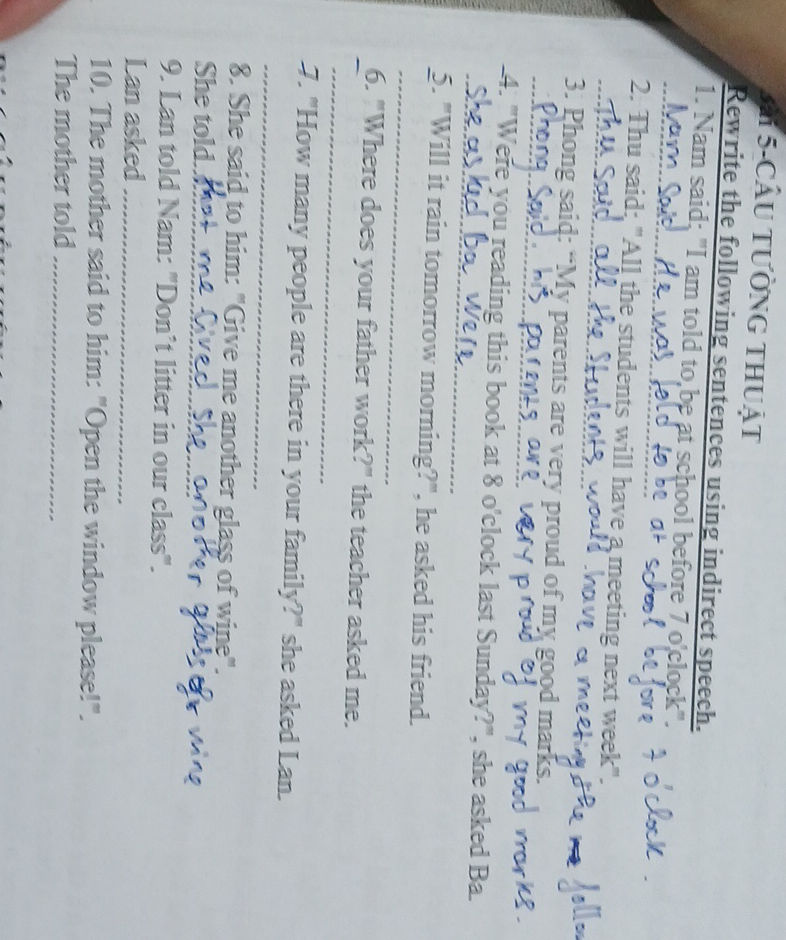 5-CÂU TƯỜNG THUẬT
Rewrite the following sentences using indirect speech.
1. Nam said: "I am told to be at school before 7 o'clock".
Nam Said He was told to be at school before 7 o'clock.
2. Thu said: "All the students will have a meeting next week".
Thu Said all the Students would have a meeting the
3. Phong said: "My parents are very proud of my good marks.
Phong Said his parents are very proud of my good marks.
4. "Were you reading this book at 8 o'clock last Sunday?", she asked Ba.
She asked Ba were
5. "Will it rain tomorrow morning?", he asked his friend.
6. "Where does your father work?" the teacher asked me.
7. "How many people are there in your family?" she asked Lan.
8. She said to him: "Give me another glass of wine".
She told that me Gived She another glass of wine
9. Lan told Nam: "Don't litter in our class".
Lan asked
10. The mother said to him: "Open the window please!".
The mother told